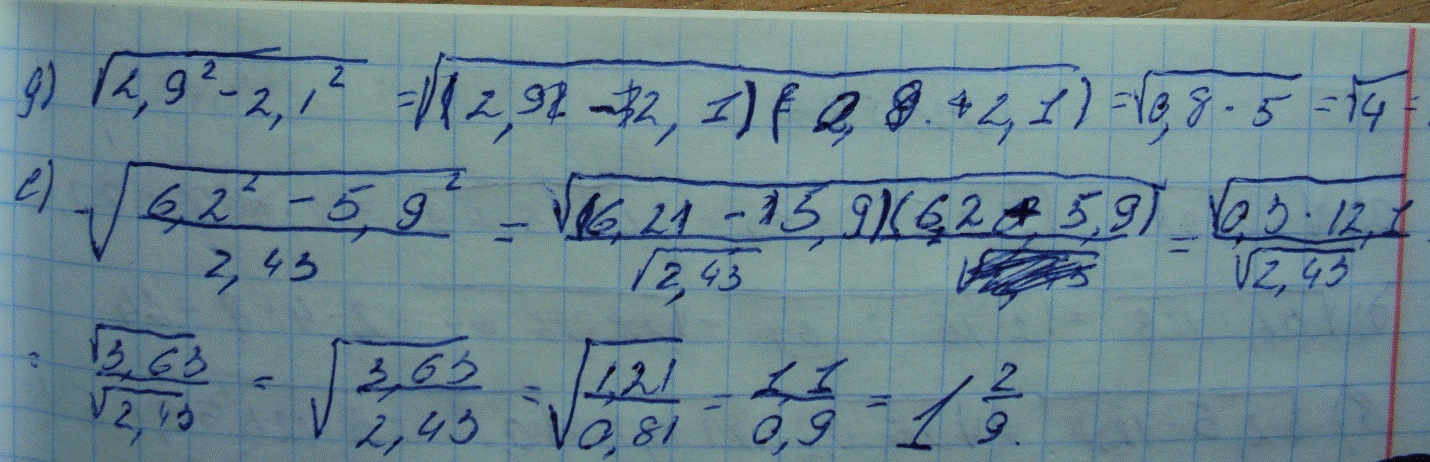 д) √(2,9² - 2,1²) = √((2,9 - 2,1)(2,9 + 2,1)) = √(0,8 · 5) = √4 =
е) √((6,2² - 5,9²)/2,43) = √((6,2 - 5,9)(6,2 + 5,9))/√2,43 = √(0,3 · 12,1)/√2,43
= √3,63/√2,43 = √(3,63/2,43) = √(1,21/0,81) = 1,1/0,9 = 1 2/9.